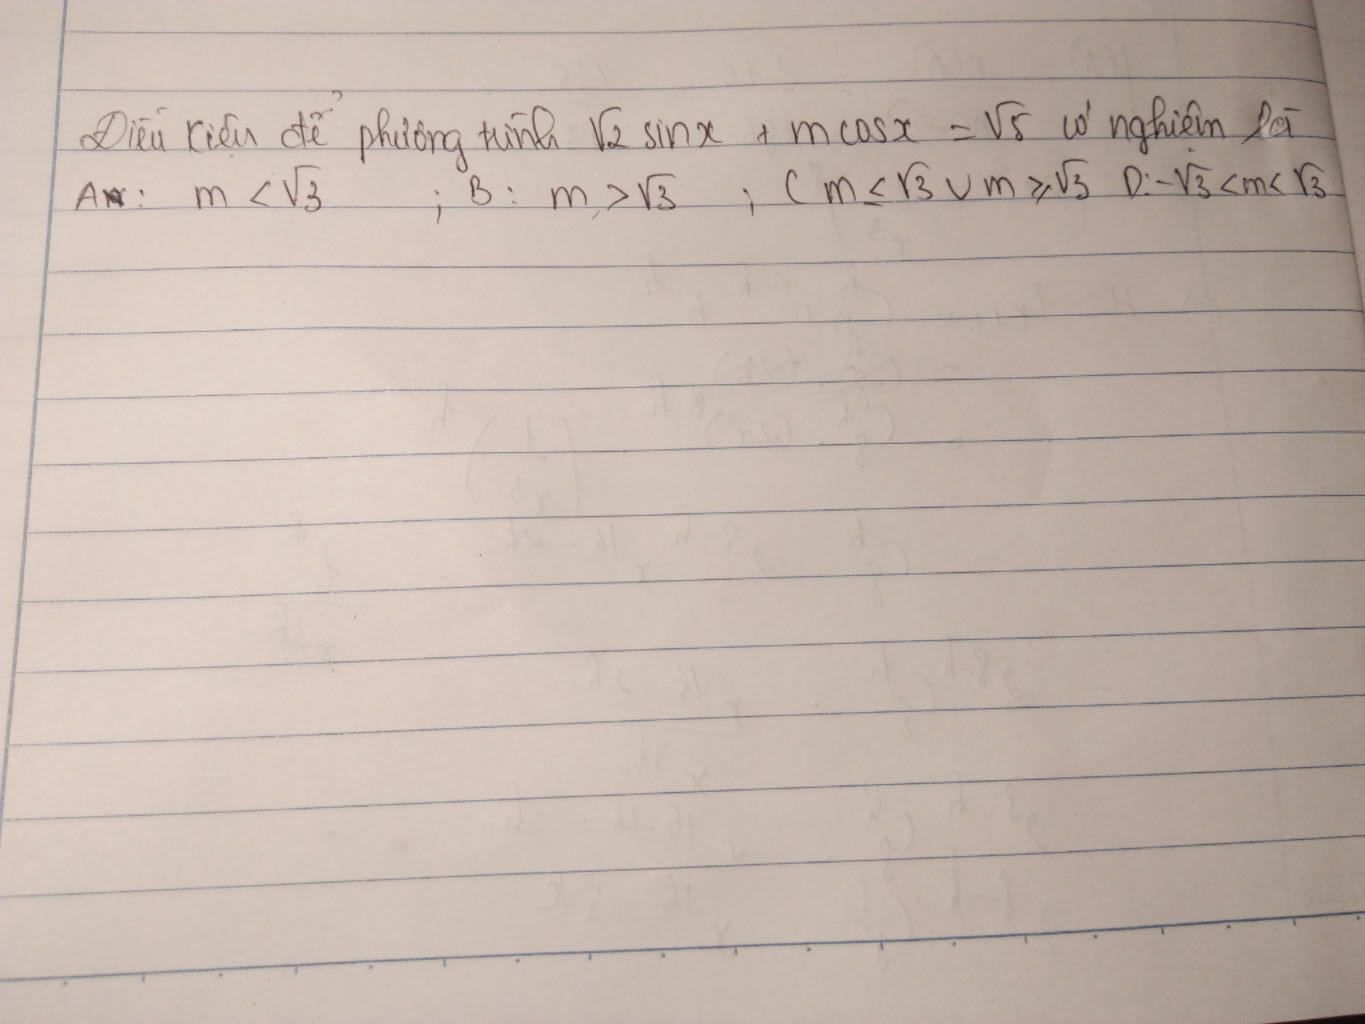 Điều kiện để phương trình √2 sinx + mcosx = √5 có nghiệm là
A: m < √3 ; B: m > √3 ; C m ≤ √3 ∪ m ⩾ √3 D: -√3 < m < √3